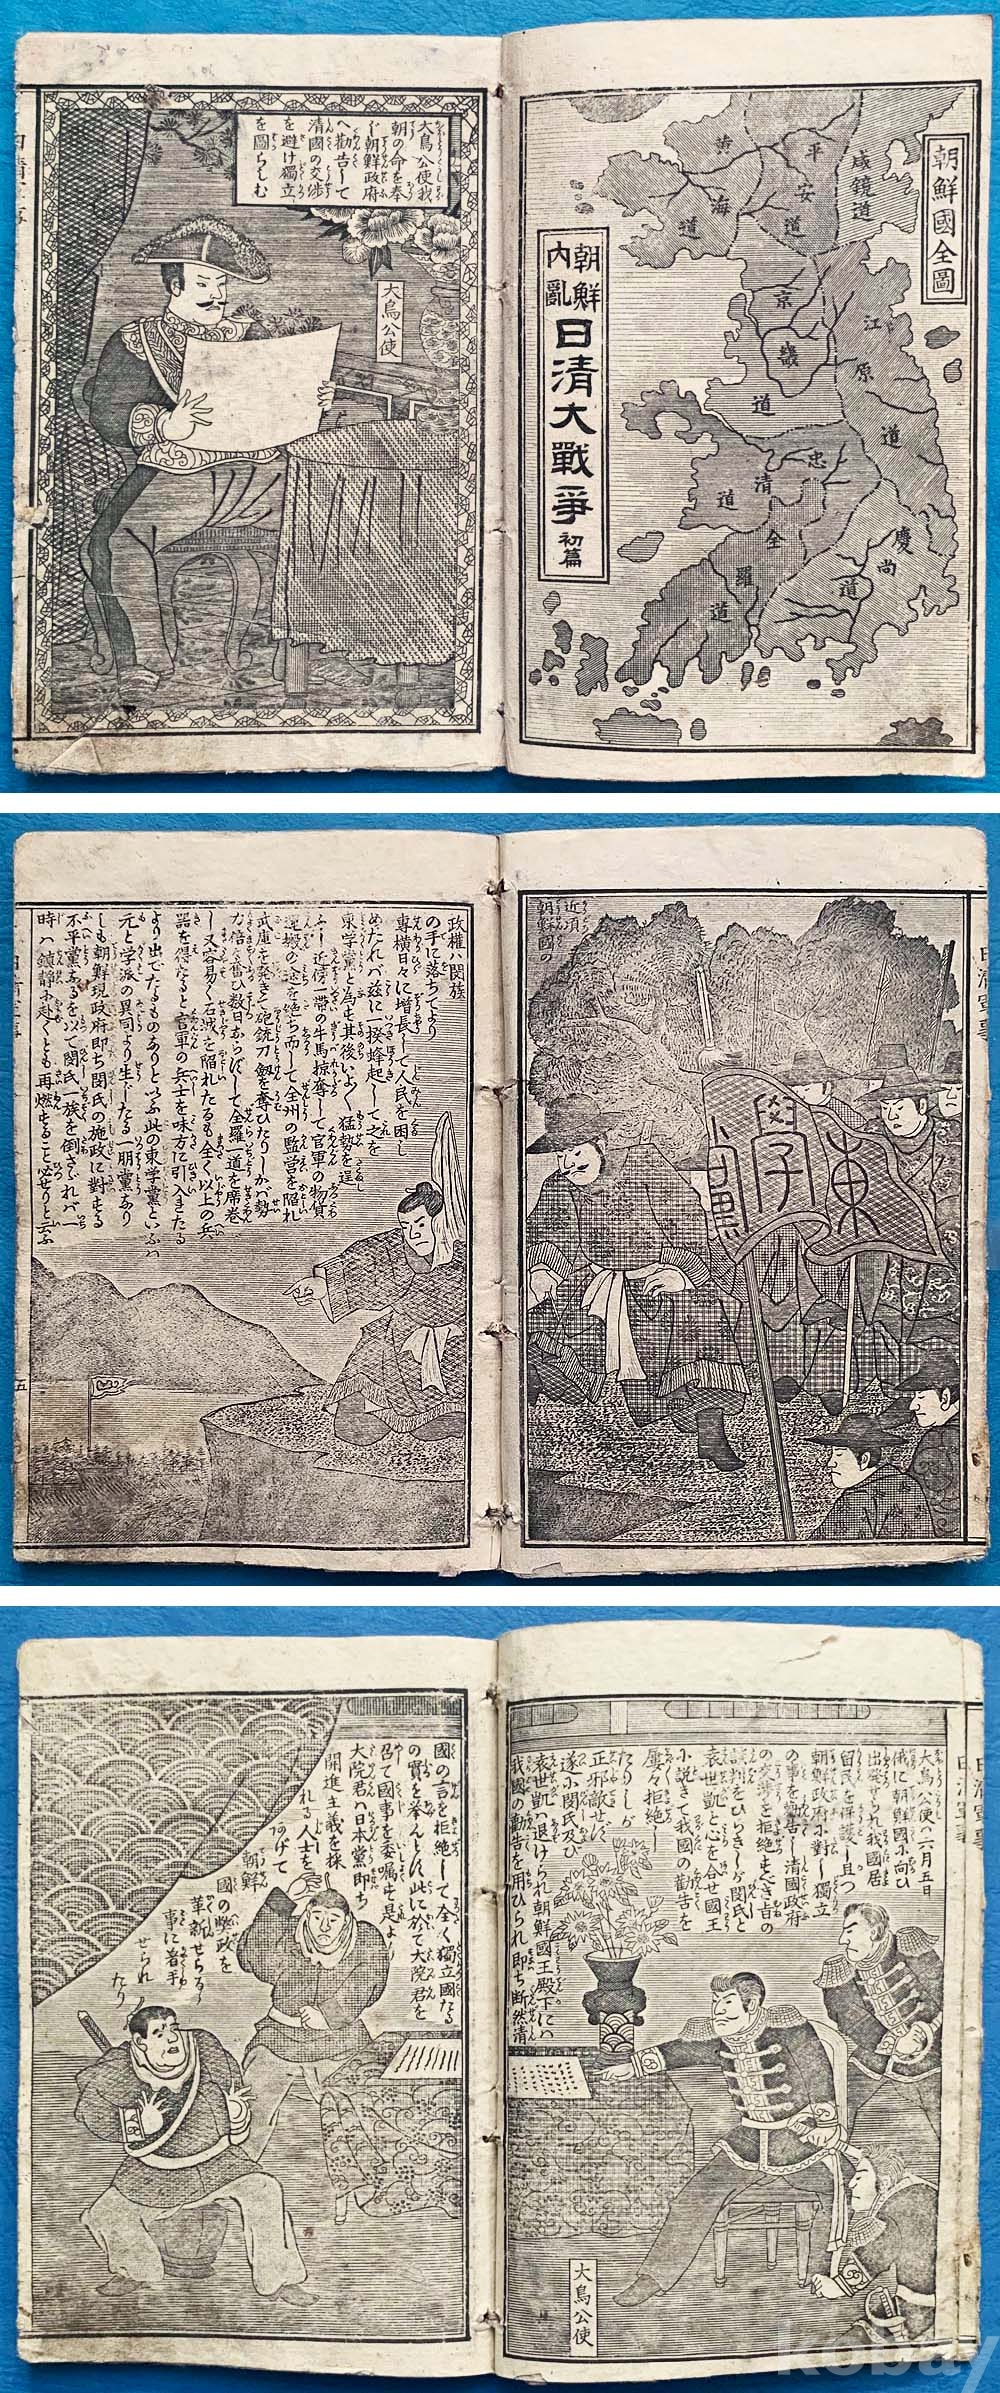 朝鮮國全圖
咸鏡道
平安道
黄海道
江原道
京畿道
忠清道
慶尚道
全羅道
朝鮮
内亂
日清大戰爭
初篇
大鳥公使我
朝の命を奉
じ朝鮮政府
へ勸告して
清國の交渉
を避け獨立
を圖らしむ
大鳥公使
近頃
朝鮮國の
東學黨
政權ハ閔族
の手に落ちてより
專横日々に増長して人民を困し
めたれバ茲に一揆蜂起して之を
東学黨と為も其後いよ〳〵猛勢を逞
ふし近傍一帶の牛馬掠奪して官軍の物貨
運搬の途を絶ち而して全州の監営を陥れ
武庫を発きて砲銃刀劔を奪ひたりしかバ勢
力倍々奮ひ数日ならずして全羅一道を席巻
し又容易く石城を陥れたるも全く以上の兵
器を得たると官軍の兵士を味方に引入きたる
より出でたるものありといふ此の東学黨といふハ
元と学派の異同より生じたる一朋黨あり
しも朝鮮現政府即ち閔氏の施政に對する
不平黨なるを以て閔氏一族を倒さゞれバ一
時ハ鎮静に赴くとも再燃すること必せりと云ふ
五
大鳥公使ハ六月五日
俄に朝鮮國に向ひ
出発せられ我國居
留民を保護し且つ
朝鮮政府に對し獨立
の事を勸告し清國政府
の交渉を拒絶すべき旨の
談判をひらきしが閔氏と
袁世凱と心を合せ國王
に説きて我國の勸告を
屡々拒絶し
たりしが
正邪敵せず
遂に閔氏及び
袁世凱ハ退けられ朝鮮國王殿下にハ
我國の勸告を用ひられ即ち断然清
大鳥公使
國の言を拒絶して全く獨立國たる
の實を挙んとす此に於て大院君を
召て國事を委嘱す是より
大院君ハ日本黨即ち
開進主義を採
れる人士を
あげて
朝鮮
國の弊政を
革新せらるゝ
事に着手
せられ
たり
kobay